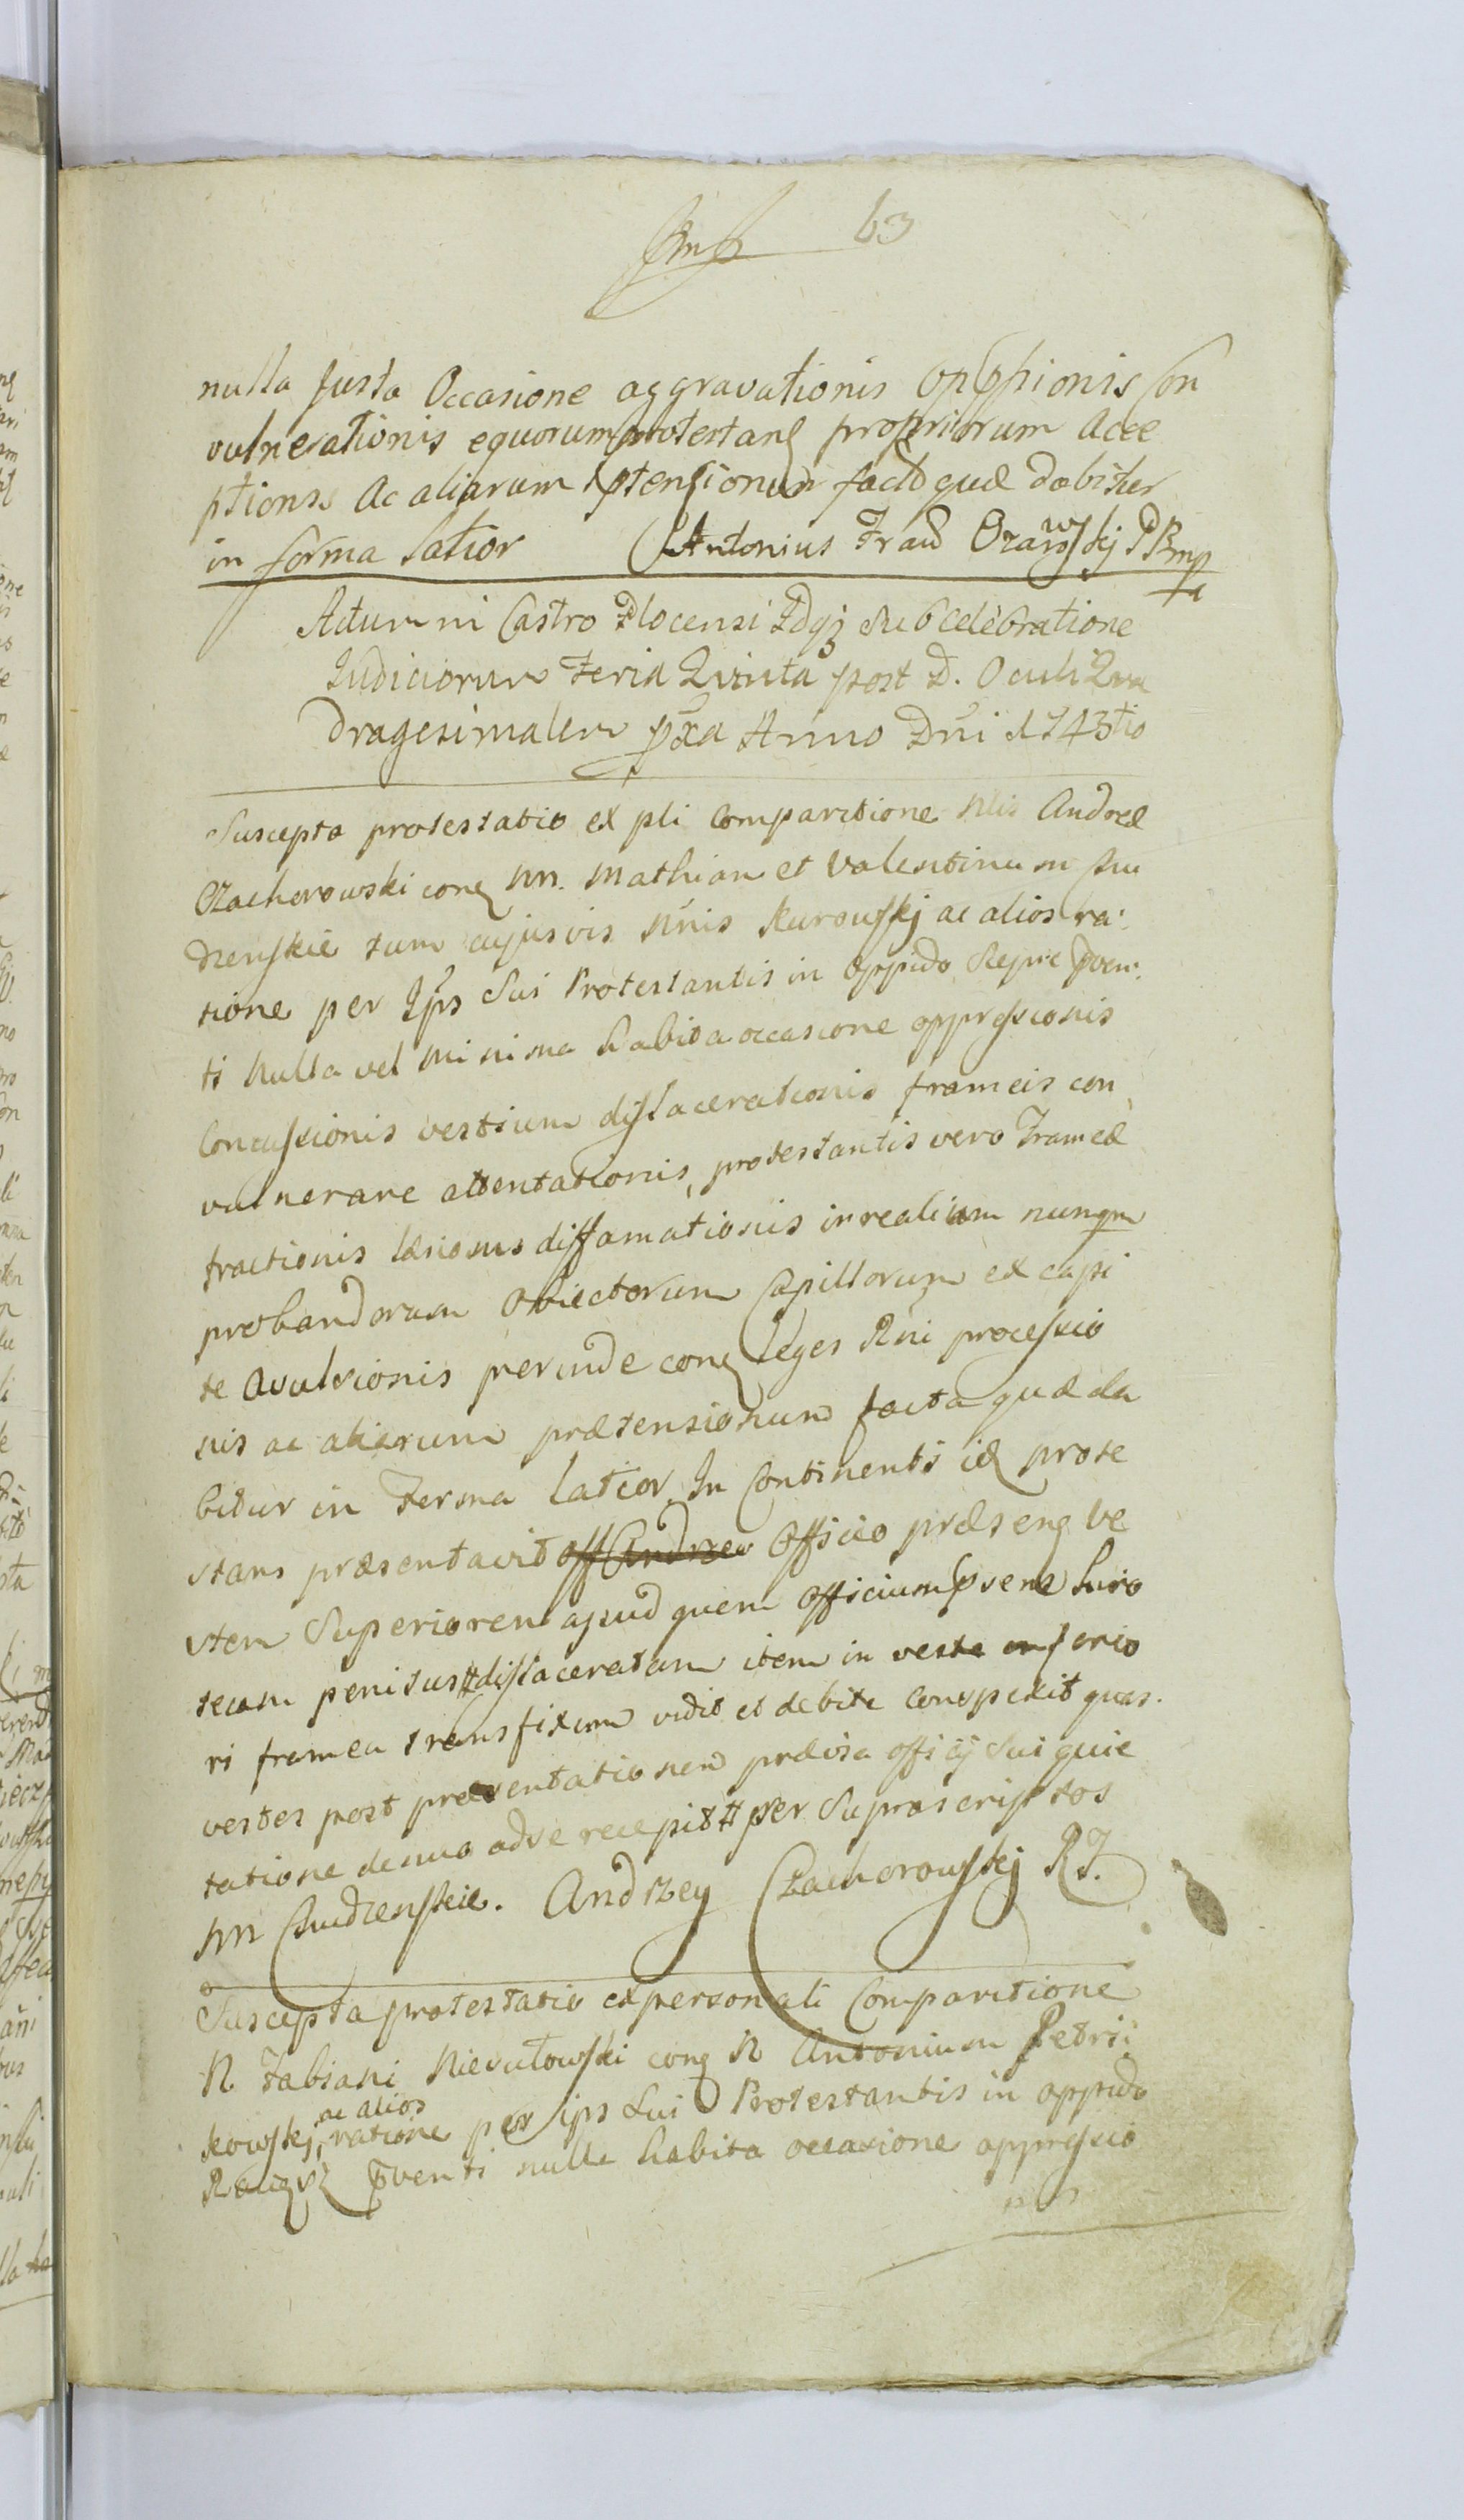 63
nulla Justa Occasione aggravationis opp̄ssionis Con
vulnerationis equorum protestanꝭ propriorum Acce
ptionis Ac aliarum p̄tensionum facta quæ dabitur
in forma latior Antonius Ozarowskj
Actum in Castro Plocensi Idqꝫ sub Celebratione
Iudiciorum Feria Quinta post D. Oculi Qua
dragesimalem p̄xa Anno Dn̄i 1743tio
Suscepta protestatio ex pli Comparitione Nlis Andreæ
Czachorowski conꝭ NN. Mathiam et Valentinum Chu
dzenskie tum cujusvis Nn̄is Kurowskj ac alios ra:
tione per Ip̄s Sui Protestantis in Oppido Sierpc p̄ven:
ti nulla vel minima habita occasione oppressionis
Concussionis vestium dislacerationis frameis con
vulnerare attentationis, protestantis vero Frameæ
fractionis læsionis diffamationis inrealium nunqm
probandorum Obiectorum Capillorum ex capi
te avulsionis perinde conꝭ leges Rn̄i processio
nis ac aliarum prætensionum facta quæ da
bitur in Forma latior In Continenti idꝭ prote
stans præsentavit off Andrzeo Officio præsenꝭ ve
stem Superiorem apud quem Officium p̄sens
tecam penitus # dislaceratam item in veste inferio
ri framea transfixum vidit et debite conspexit quas
vestes post præsentationem prævia officij Sui quie
tatione denuo ad se recepit # per Suprascriptos
NN Chudzenskie. Andrzey Czachorowskj
Suscepta protestatio ex personali Comparitione
N Fabiani Niesułowski conꝭ N Antonium Petri:
kowskj, ac alios ratione per ips Sui Protestantis in oppido
Raciąż p̄venti nulla habita occasione oppressio
nis